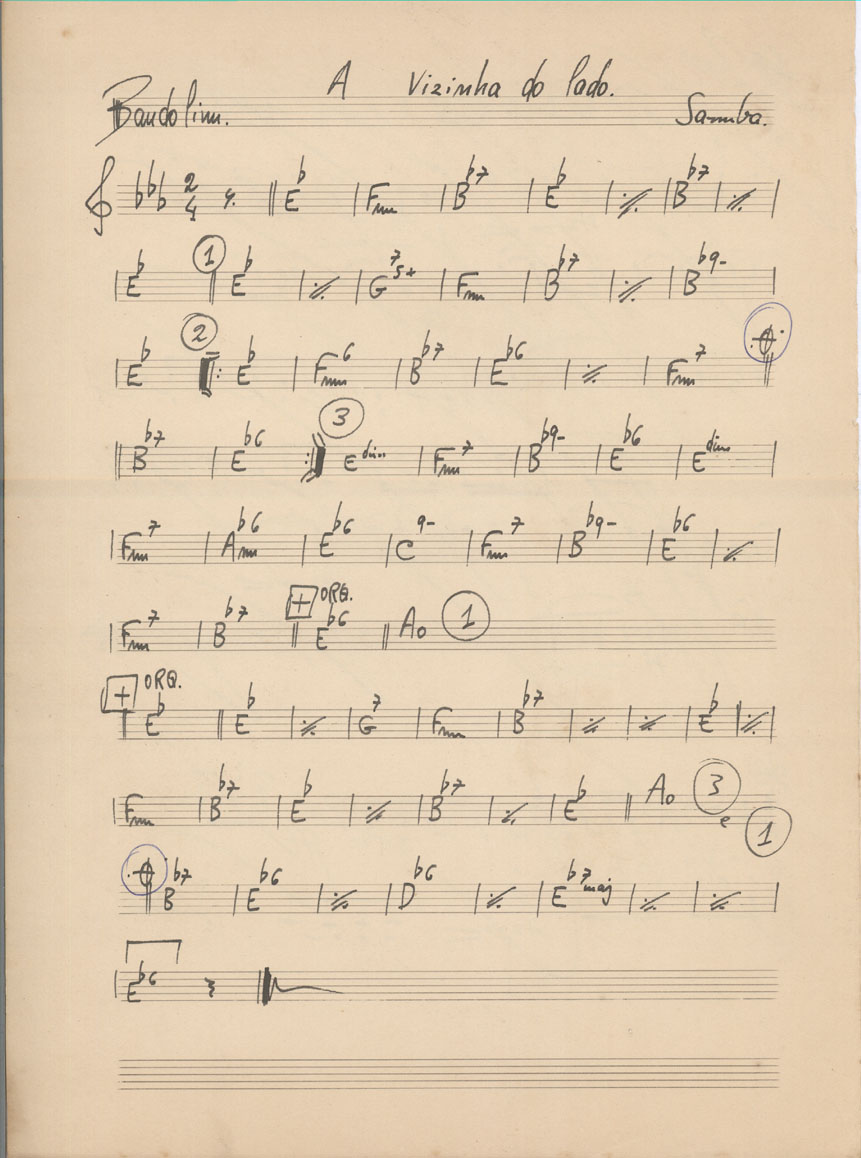 A Vizinha do lado.
Bandolim. Samba.
2/4 E♭ | Fm | B♭7 | E♭ | ٪ | B♭7 | ٪ |
| E♭ || ① E♭ | ٪ | G7 5+ | Fm | B♭7 | ٪ | B♭9- |
| E♭ ② ||: E♭ | Fm6 | B♭7 | E♭6 | ٪ | Fm7 ||
|| B♭7 | E♭6 :|| ③ Edim | Fm7 | B♭9- | E♭6 | Edim |
| Fm7 | A♭m6 | E♭6 | C9- | Fm7 | B♭9- | E♭6 | ٪ |
| Fm7 | B♭7 || + ORQ. E♭6 || Ao ①
+ ORQ.
| E♭ || E♭ | ٪ | G7 | Fm | B♭7 | ٪ | ٪ | E♭ | ٪ |
| Fm | B♭7 | E♭ | ٪ | B♭7 | ٪ | E♭ || Ao ③
e ①
|| B♭7 | E♭6 | ٪ | D♭6 | ٪ | E♭7maj | ٪ | ٪ |
| E♭6 ||